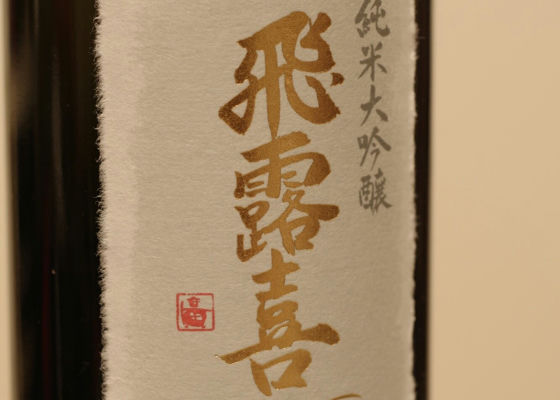 純米大吟醸
飛露喜